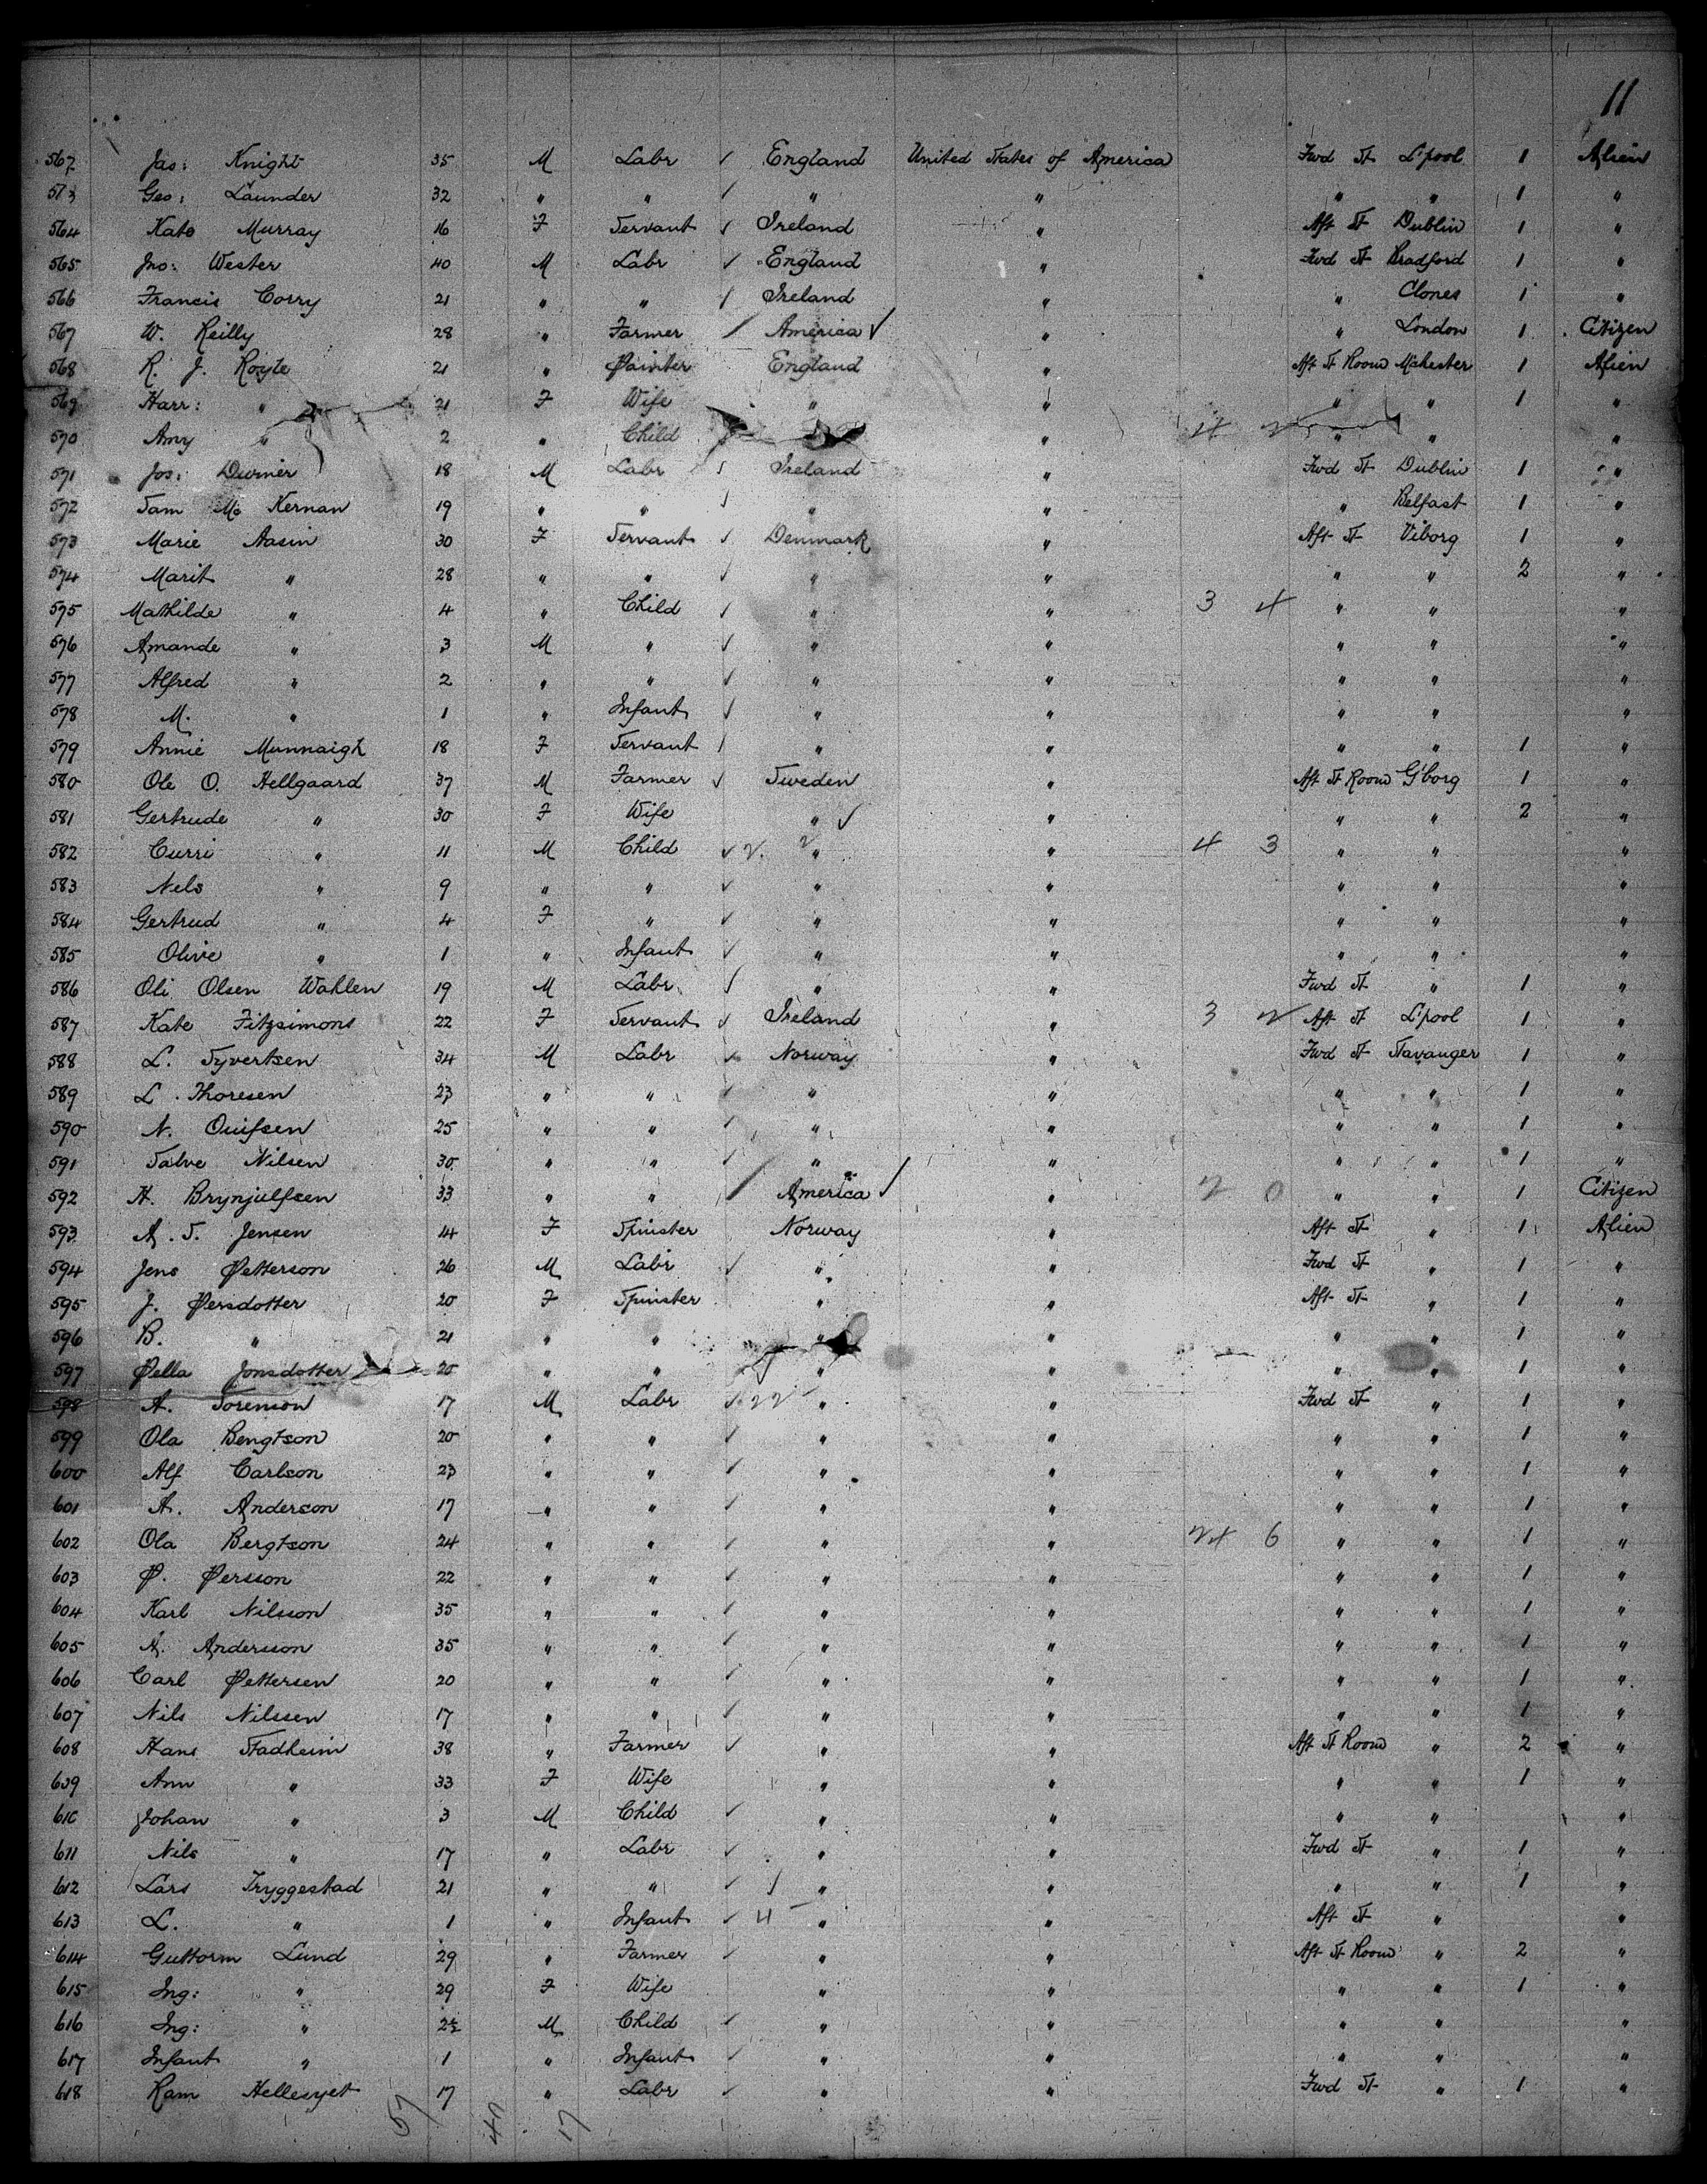 11
562 Jas: Knight 35 M Labr ✓ England United States of America Fwd St L'pool 1 Alien
563 Geo: Launder 32 " " ✓ " " " " 1 "
564 Kate Murray 16 F Servant ✓ Ireland " Aft St Dublin 1 "
565 Jno: Wester 40 M Labr ✓ England " Fwd St Bradford 1 "
566 Francis Corry 21 " " ✓ Ireland " " Clones 1 "
567 W. Reilly 28 " Farmer ✓ America ✓ " " London 1 Citizen
568 R. J. Royle 21 " Painter England " Aft St Room M'chester 1 Alien
569 Harr: " 21 F Wife " " " " 1 "
570 Amy " 2 " Child " 4 2 " " "
571 Jos: Durnier 18 M Labr ✓ Ireland " Fwd St Dublin 1 "
572 Sam Mc Kernan 19 " " ✓ " " " Belfast 1 "
573 Marie Aasin 30 F Servant ✓ Denmark " Aft St Viborg 1 "
574 Marit " 28 " " ✓ " " " " 2 "
575 Mathilde " 4 " Child ✓ " " 3 4 " " "
576 Amande " 3 M " ✓ " " " " "
577 Alfred " 2 " " ✓ " " " " "
578 M. " 1 " Infant ✓ " " " " "
579 Annie Munnaigh 18 F Servant ✓ " " " " 1 "
580 Ole O. Hellgaard 37 M Farmer ✓ Sweden " Aft St Room G'borg 1 "
581 Gertrude " 30 F Wife " ✓ " " " 2 "
582 Curri " 11 M Child ✓ 2 2 " " 4 3 " " "
583 Nels " 9 " " ✓ " " " " "
584 Gertrud " 4 F " ✓ " " " " "
585 Olive " 1 " Infant ✓ " " " " "
586 Oli Olsen Wahlen 19 M Labr ✓ " " Fwd St " 1 "
587 Kate Fitzsimons 22 F Servant ✓ Ireland " 3 2 Aft St L'pool 1 "
588 L. Syvertsen 34 M Labr ✓ Norway " Fwd St Stavanger 1 "
589 L. Thoresen 23 " " ✓ " " " " 1 "
590 N. Ouifsen 25 " " ✓ " " " " 1 "
591 Salve Nilsen 30 " " ✓ " " " " 1 "
592 H. Brynjulfsen 33 " " ✓ America ✓ " 2 0 " " 1 Citizen
593 A. S. Jensen 14 F Spinster Norway " Aft St " 1 Alien
594 Jens Petterson 26 M Labr ✓ " " Fwd St " 1 "
595 J. Persdotter 20 F Spinster " " Aft St " 1 "
596 B. " 21 " " " " " " 1 "
597 Pella Jonsdotter 20 " " " " " 1 "
598 A. Sorenson 17 M Labr ✓ 22 " " Fwd St " 1 "
599 Ola Bengtson 20 " " ✓ " " " " 1 "
600 Alf Carlson 23 " " ✓ " " " " 1 "
601 A. Anderson 17 " " ✓ " " " " 1 "
602 Ola Bergtson 24 " " ✓ " " 24 6 " " 1 "
603 P. Persson 22 " " ✓ " " " " 1 "
604 Karl Nilsson 35 " " ✓ " " " " 1 "
605 A. Andersson 35 " " ✓ " " " " 1 "
606 Carl Pettersen 20 " " ✓ " " " " 1 "
607 Nils Nilssen 17 " " ✓ " " " " 1 "
608 Hans Stadheim 38 " Farmer ✓ " " Aft St Room " 2 "
609 Ann " 33 F Wife " " " " 1 "
610 Johan " 3 M Child ✓ " " " " "
611 Nils " 17 " Labr ✓ " " Fwd St " 1 "
612 Lars Tryggestad 21 " " ✓ " " " " 1 "
613 L. " 1 " Infant ✓ 4 " " Aft St " "
614 Guttorm Lund 29 " Farmer ✓ " " Aft St Room " 2 "
615 Ing: " 29 F Wife " " " " 1 "
616 Ing: " 2½ M Child ✓ " " " " "
617 Infant " 1 " Infant ✓ " " " " "
618 Ram Hellesyet 17 " Labr ✓ " " Fwd St " 1 "
57 40 17